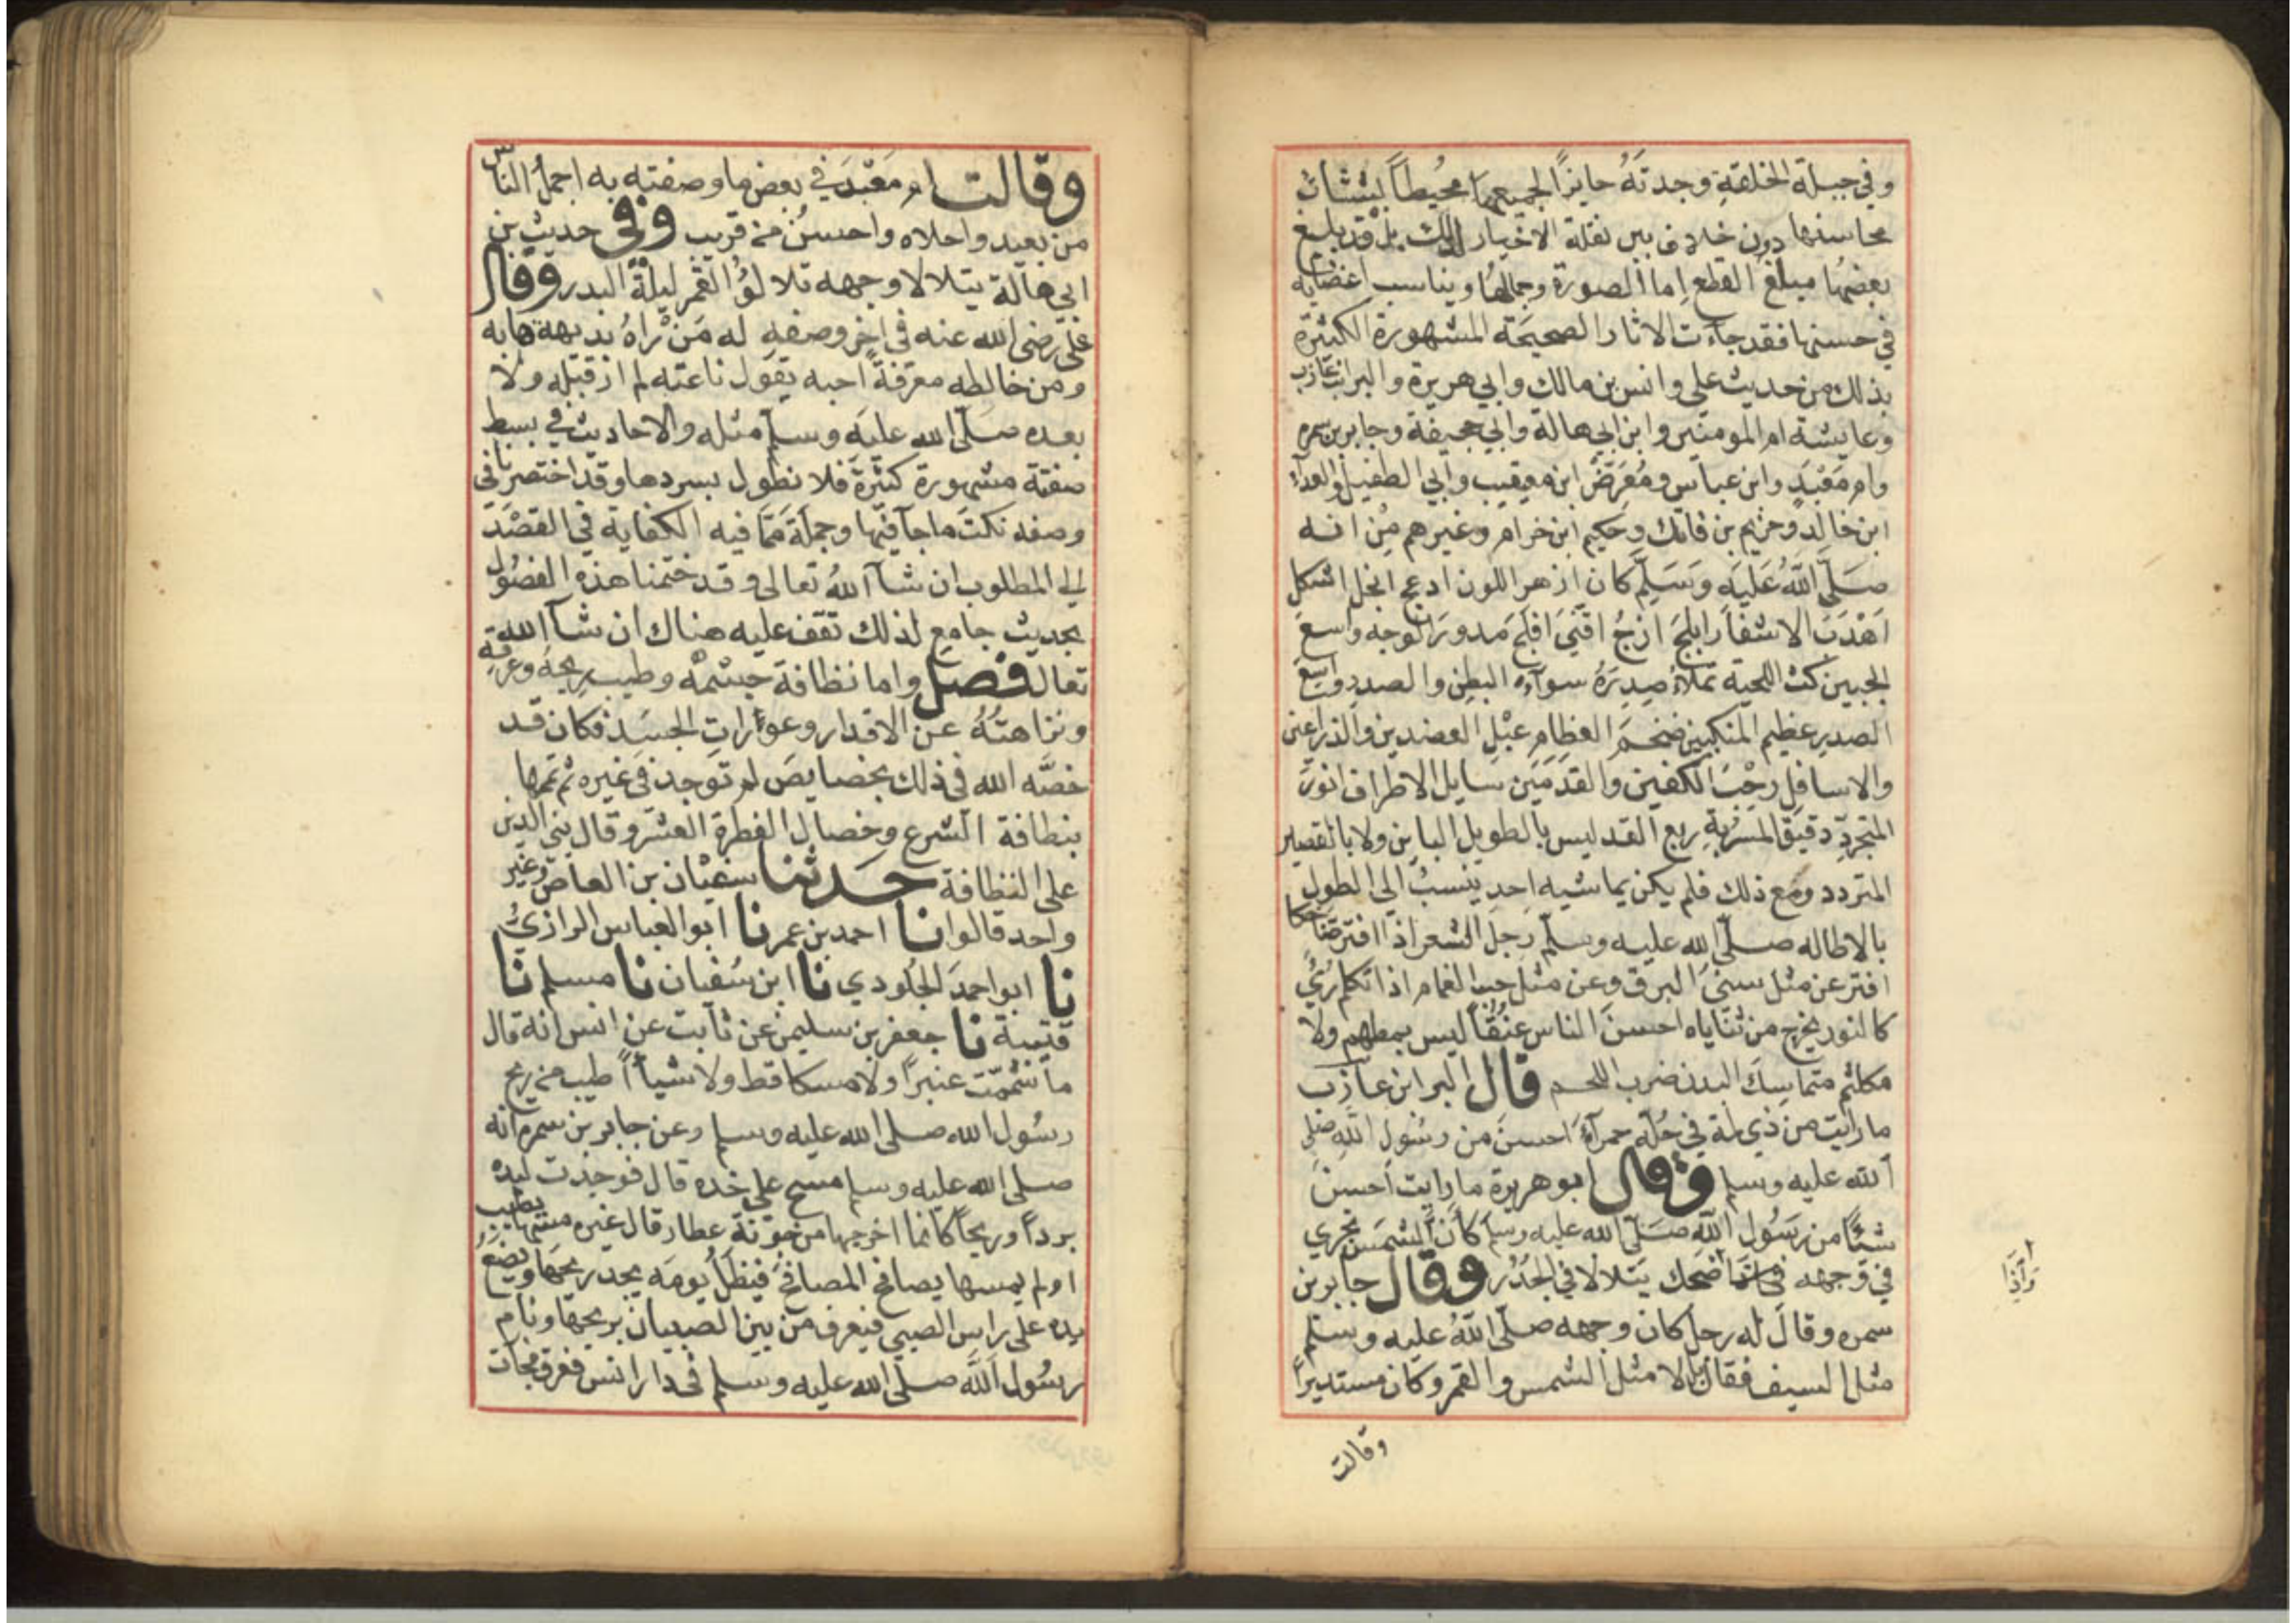 وفي جبلة الخلقة وجدته حايزاً لجميعها محيطاً بشتات
محاسنها دون خلاف بين نقلة الاخبار لذلك بل قد بلغ
بعضها مبلغ القطع اما الصورة وجمالها ويناسب اعضايه
في حسنها فقد جاءت الاثار الصحيحة المشهورة الكثيرة
بذلك من حديث علي وانس بن مالك وابي هريرة والبرا بن عازب
وعايشة ام المومنين وابن ابي هالة وابي جحيفة وجابر بن سمره
وام معبد وابن عباس ومعرض ابن معيقيب وابي الطفيل والعداء
ابن خالد وخريم بن فاتك وحكيم ابن خرام وغيرهم من انه
صلى الله عليه وسلم كان ازهر اللون ادعج انجل اشكل
اهدب الاشفار ابلج ازج اقنى افلج مدور الوجه واسع
الجبين كث اللحية تملاء صدره سواء البطن والصدر واسع
الصدر عظيم المنكبين ضخم العظام عبل العضدين والذراعين
والاسافل رحب الكفين والقدمين سايل الاطراف انور
المتجرد دقيق المسربة ربع القد ليس بالطويل الباين ولا بالقصير
المتردد ومع ذلك فلم يكن يماشيه احد ينسب الى الطول
بالاطاله صلى الله عليه وسلم رجل الشعر اذا افتر ضاحكا
افتر عن مثل سنى البرق وعن مثل حب الغمام اذا تكلم رئي
كالنور يخرج من ثناياه احسن الناس عنقاً ليس بمطهم ولا
مكلثم متماسك البدن ضرب اللحم قال البرا ابن عازب
ما رايت من ذي لمة في حلة حمرآء احسن من رسول الله صلى
الله عليه وسلم وقال ابو هريرة ما رايت احسن
شئًا من رسول الله صلى الله عليه وسلم كان الشمس تجري
في وجهه ضحك يتلالا في الجدر وقال جابر بن
وآذا
سمره وقال له رجل كان وجهه صلى الله عليه وسلم
مثل السيف فقال بل لا مثل الشمس والقمر وكان مستديراً
وقالت
وقالت ام معبد في بعض ما وصفته به اجمل الناس
من بعيد واحلاه واحسن من قريب وفى حديث بن
ابي هالة يتلالا وجهه تلالؤ القمر ليلة البدر وقال
على رضى الله عنه في اخر وصفه له من راه بديهة هابه
ومن خالطه معرفةً احبه يقول ناعته لم ار قبله ولا
بعده صلى الله عليه وسلم مثله والاحاديث في بسط
صفته مشهورة كثيرة فلا نطول بسردها وقد اختصرنا فى
وصفه نكت ما جآ فيها وجملة مما فيه الكفاية في القصد
الي المطلوب ان شآ الله تعالى وقد ختمنا هذه الفصول
بحديث جامع لذلك تقف عليه هناك ان شآ الله
تعالى فصل واما نظافة جسمه وطيب ريحه وعرقه
ونزاهته عن الاقدار وعورات الجسد فكان قد
خصه الله في ذلك بخصايص لم توجد في غيره ثم تمها
بنظافة الشرع وخصال الفطرة العشر وقال بني الدين
على النظافة حدثنا سفيان بن العاص وغير
واحد قالوا نا احمد بن عمر نا ابو العباس الرازي
نا ابو احمد الجلودي نا ابن سفيان نا مسلم نا
قتيبة نا جعفر بن سليمن عن ثابت عن انس انه قال
ما شممت عنبراً ولا مسكا قط ولا شيأً اطيب من ريح
رسول الله صلى الله عليه وسلم وعن جابر بن سمره انه
صلى الله عليه وسلم مسح على خده قال فوجدت ليده
برداً وريحاً كانما اخرجها من جونة عطار قال غيره مسها بطيب
او لم يمسها يصافح المصافح فيظل يومه يجد ريحها ويضع
يده على راس الصبي فيعرف من بين الصبيان بريحها ونام
رسول الله صلى الله عليه وسلم فى دار انس فعرق فجآت